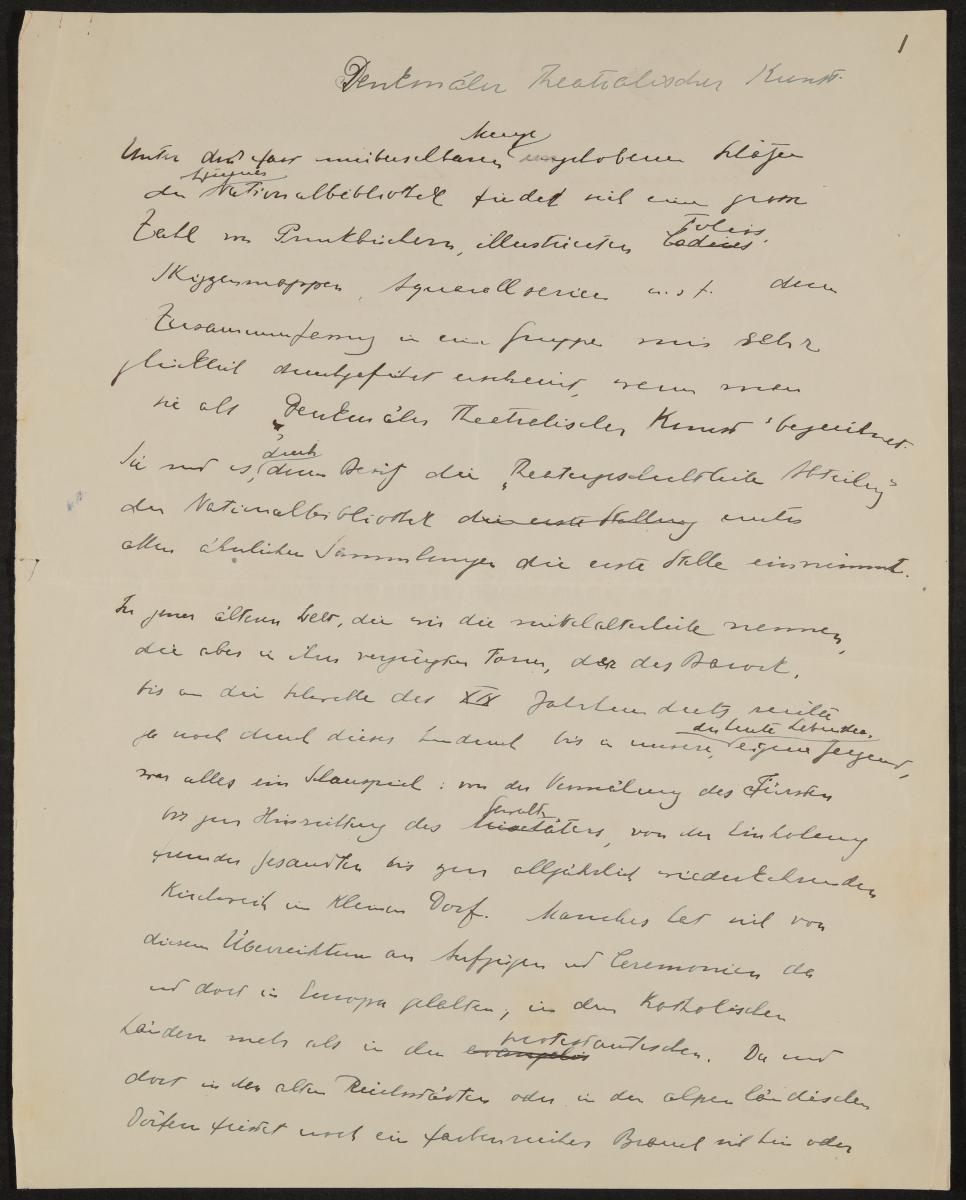 1
Denkmäler Theatralischer Kunst.
Menge
Unter der fast unübersehbaren ungehobener Schätze
Wiener
der Nationalbibliothek findet sich eine grosse
Folios.
Zahl von Prunkbüchern, illustrierten Codices
Skizzenmappen, Aquarellserien u.s.f. deren
Zusammenfassung in eine Gruppe uns sehr
glücklich durchgeführt erscheint, wenn man
sie als "Denkmäler Theatralischer Kunst" bezeichnet.
durch
Sie sind es, deren Besitz die "Theatergeschichtliche Abteilung"
der Nationalbibliothek die erste Stellung unter
allen ähnlichen Sammlungen die erste Stelle einnimmt.
In jener älteren Welt, die wir die mittelalterliche nennen,
die aber in ihrer verjüngten Form, der des Barock,
bis an die Schwelle des XIX Jahrhunderts reichte
der heute Lebenden,
ja noch durch dieses hindurch bis in unsere, eigene Jugend,
war alles ein Schauspiel: von der Vermählung des Fürsten
bis zur Hinrichtung des täters, von der Einholung
fremder Gesandten bis zur alljährlich wiederkehrenden
Kirchweih im kleinen Dorf. Manches hat sich von
diesem Überreichtum an Aufzügen und Ceremonien da
und dort in Europa gehalten, in den Katholischen
protestantischen.
Ländern mehr als in den evangelis Da und
dort in den alten Reichsstädten oder in den alpenländischen
Dörfern fristet noch ein farbenreicher Brauch sich hin oder